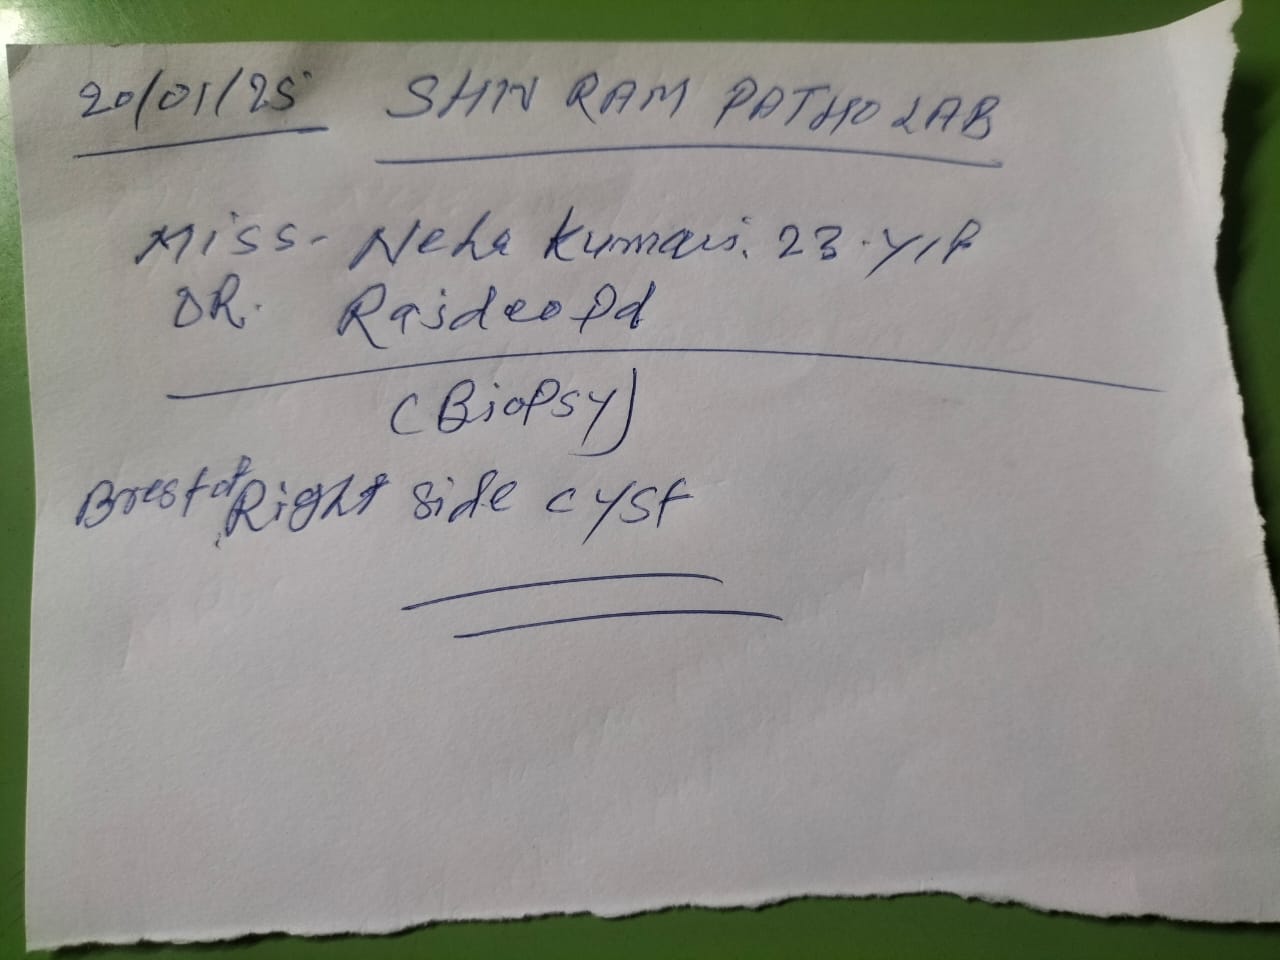 20/01/25 SHIV RAM PATHO LAB
Miss- Neha Kumari. 23.Y/F
DR. Rajdeo Pd
(Biopsy)
Brest of Right side cyst